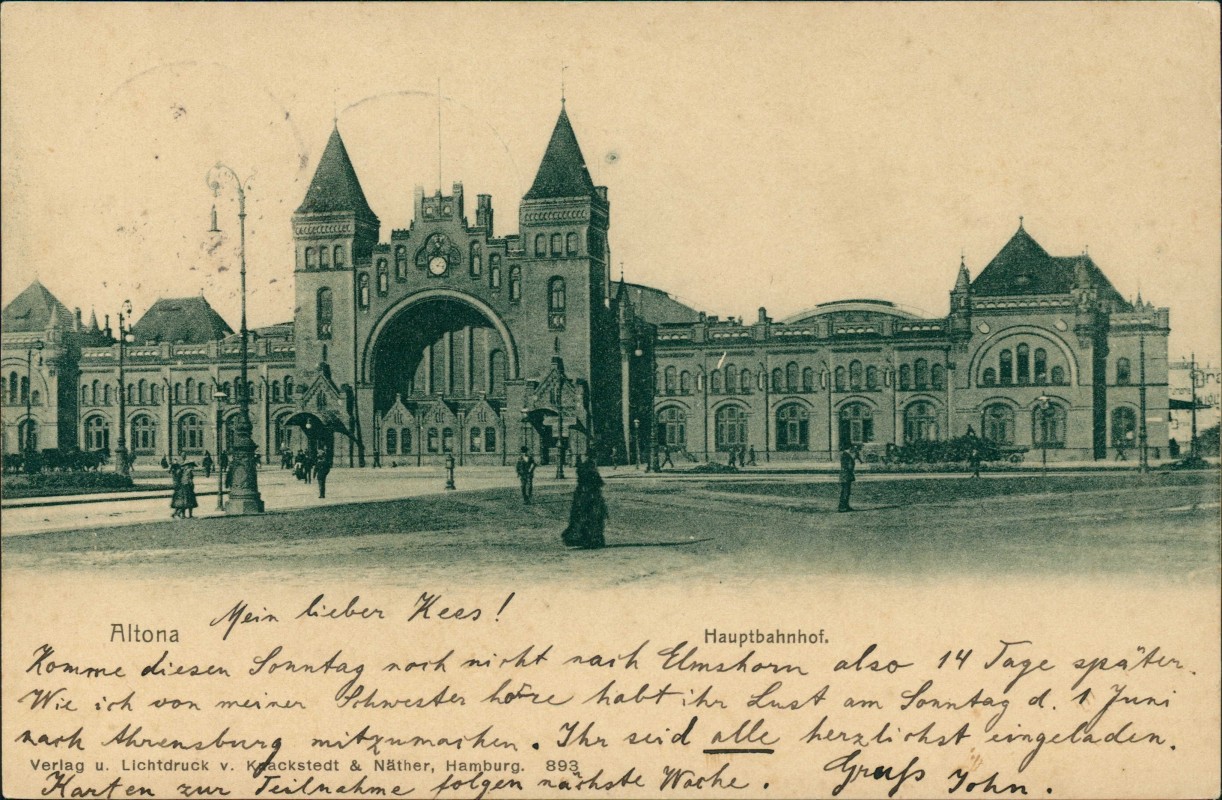 Mein lieber Kees!
Altona
Hauptbahnhof.
Komme diesen Sonntag noch nicht nach Elmshorn also 14 Tage später.
Wie ich von meiner Schwester höre habt ihr Lust am Sonntag d. 1 Juni
nach Ahrensburg mitzumachen. Ihr seid alle herzlichst eingeladen.
Verlag u. Lichtdruck v. Knackstedt & Näther, Hamburg. 893
Karten zur Teilnahme folgen nächste Woche. Gruß John.